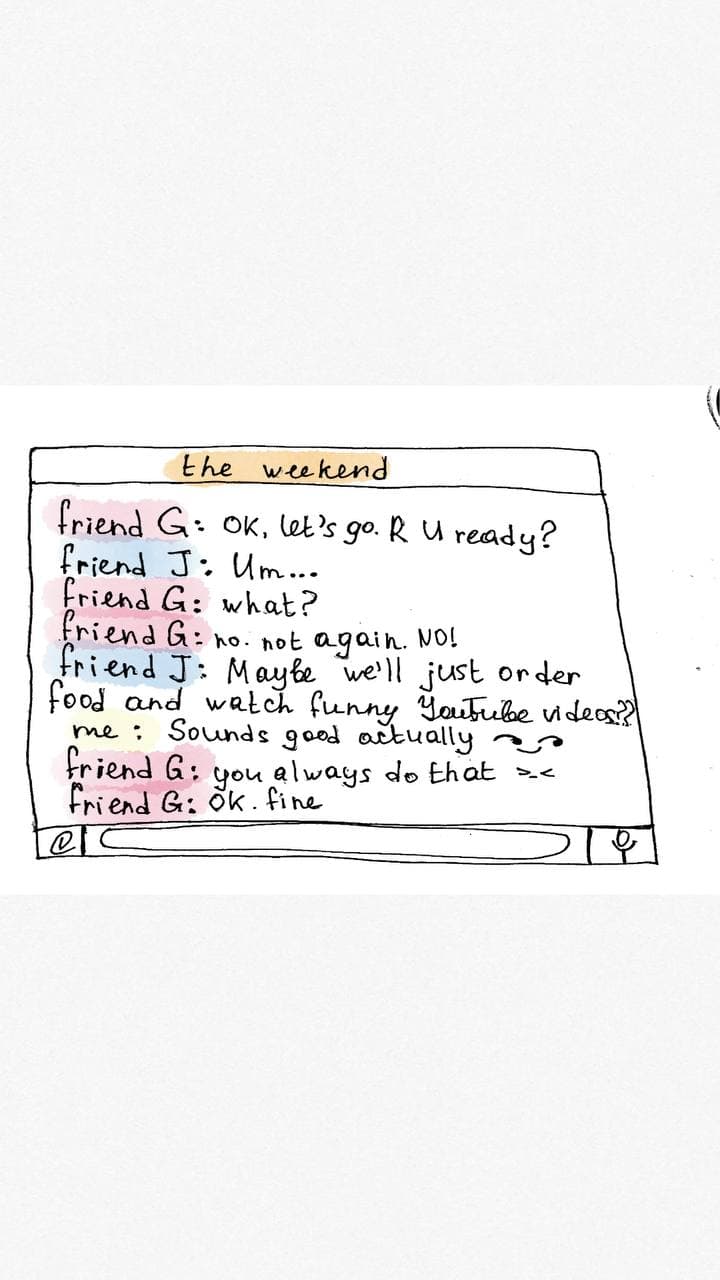 the weekend
friend G: OK, let's go. R U ready?
friend J: Um...
friend G: what?
friend G: no. not again. NO!
friend J: Maybe we'll just order
food and watch funny YouTube videos??
me: Sounds good actually
friend G: you always do that >.<
friend G: Ok. fine
@